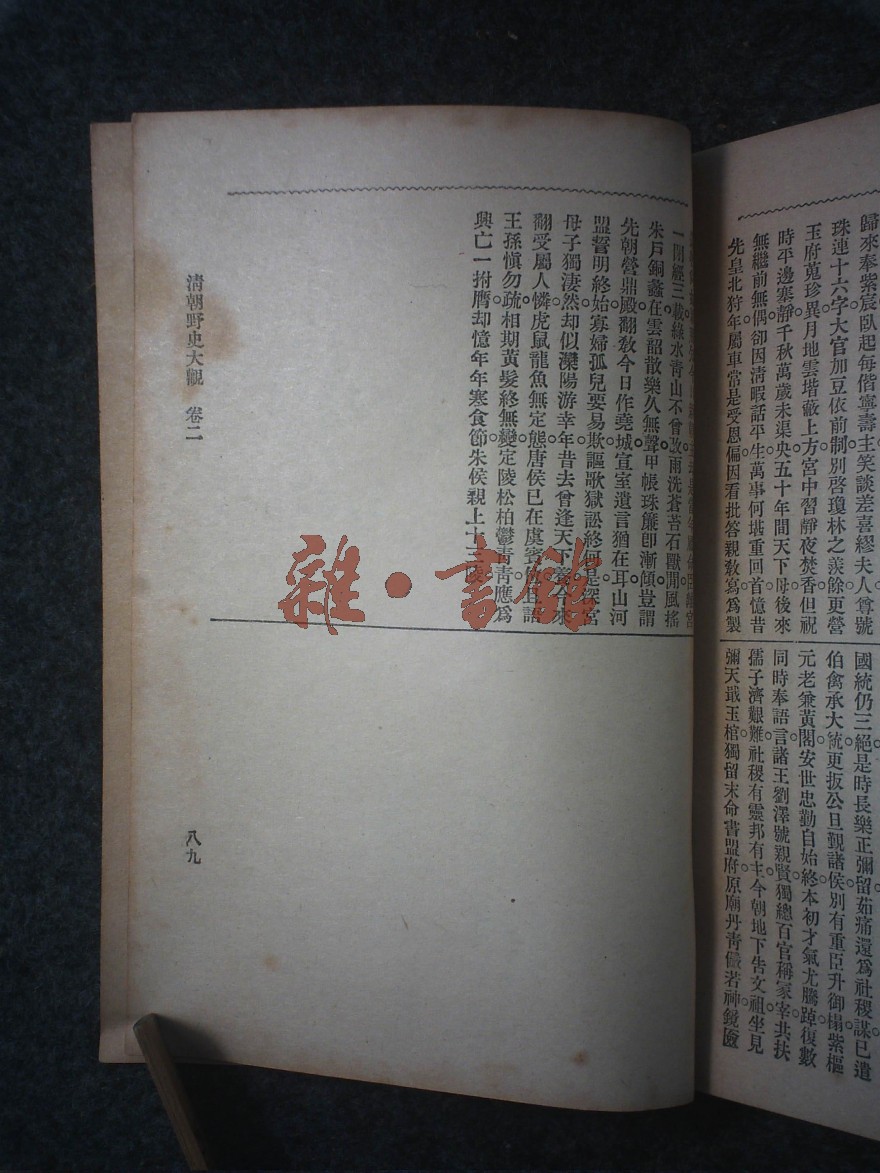 歸來奉紫宸臥起每偕寧壽主笑談差喜繆夫人尊號
珠連十六字大官加豆依前制別啓瓊林之羨餘更營
玉府蒐珍異月地雲堦蔽上方宮中習靜夜焚香但祝
時平邊塞靜千秋萬歲未渠央五十年間天下母後來
無繼前無偶卻因清暇話平生萬事何堪重回首憶昔
先皇北狩年屬車常是受恩偏因看批答親敎寫爲製
國統仍三絕是時長樂正彌留茹痛還爲社稷謀已遣
伯禽承大統更扳公旦覲諸侯別有重臣升御榻紫樞
元老兼黃閣安世忠勤自始終本初才氣尤騰踔復數
同時奉語言諸王劉澤號親賢獨總百官稱冢宰共扶
孺子濟艱難社稷有靈邦有主今朝地下告文祖坐見
彌天戢玉棺獨留末命書盟府原廟丹青儼若神鏡匳
一閉經三載綠水青山不曾改雨洗蒼苔石獸閒風搖
朱戶銅蠡在雲韶散樂久無聲甲帳珠簾卽漸傾豈謂
先朝營鼎殿翻敎今日作堯城宣室遺言猶在耳山河
盟誓明終始寡婦孤兒要易欺謳歌獄訟終何是深宮
母子獨淒然却似灤陽游幸年昔去曾逢天下養今來
翻受屬人憐虎鼠龍魚無定態唐侯已在虞賓位且語
王孫愼勿疏相期黃髮終無變定陵松柏鬱靑靑應爲
興亡一拊膺却憶年年寒食節朱侯親上十三陵
淸朝野史大觀 卷二
八九
雜·書館